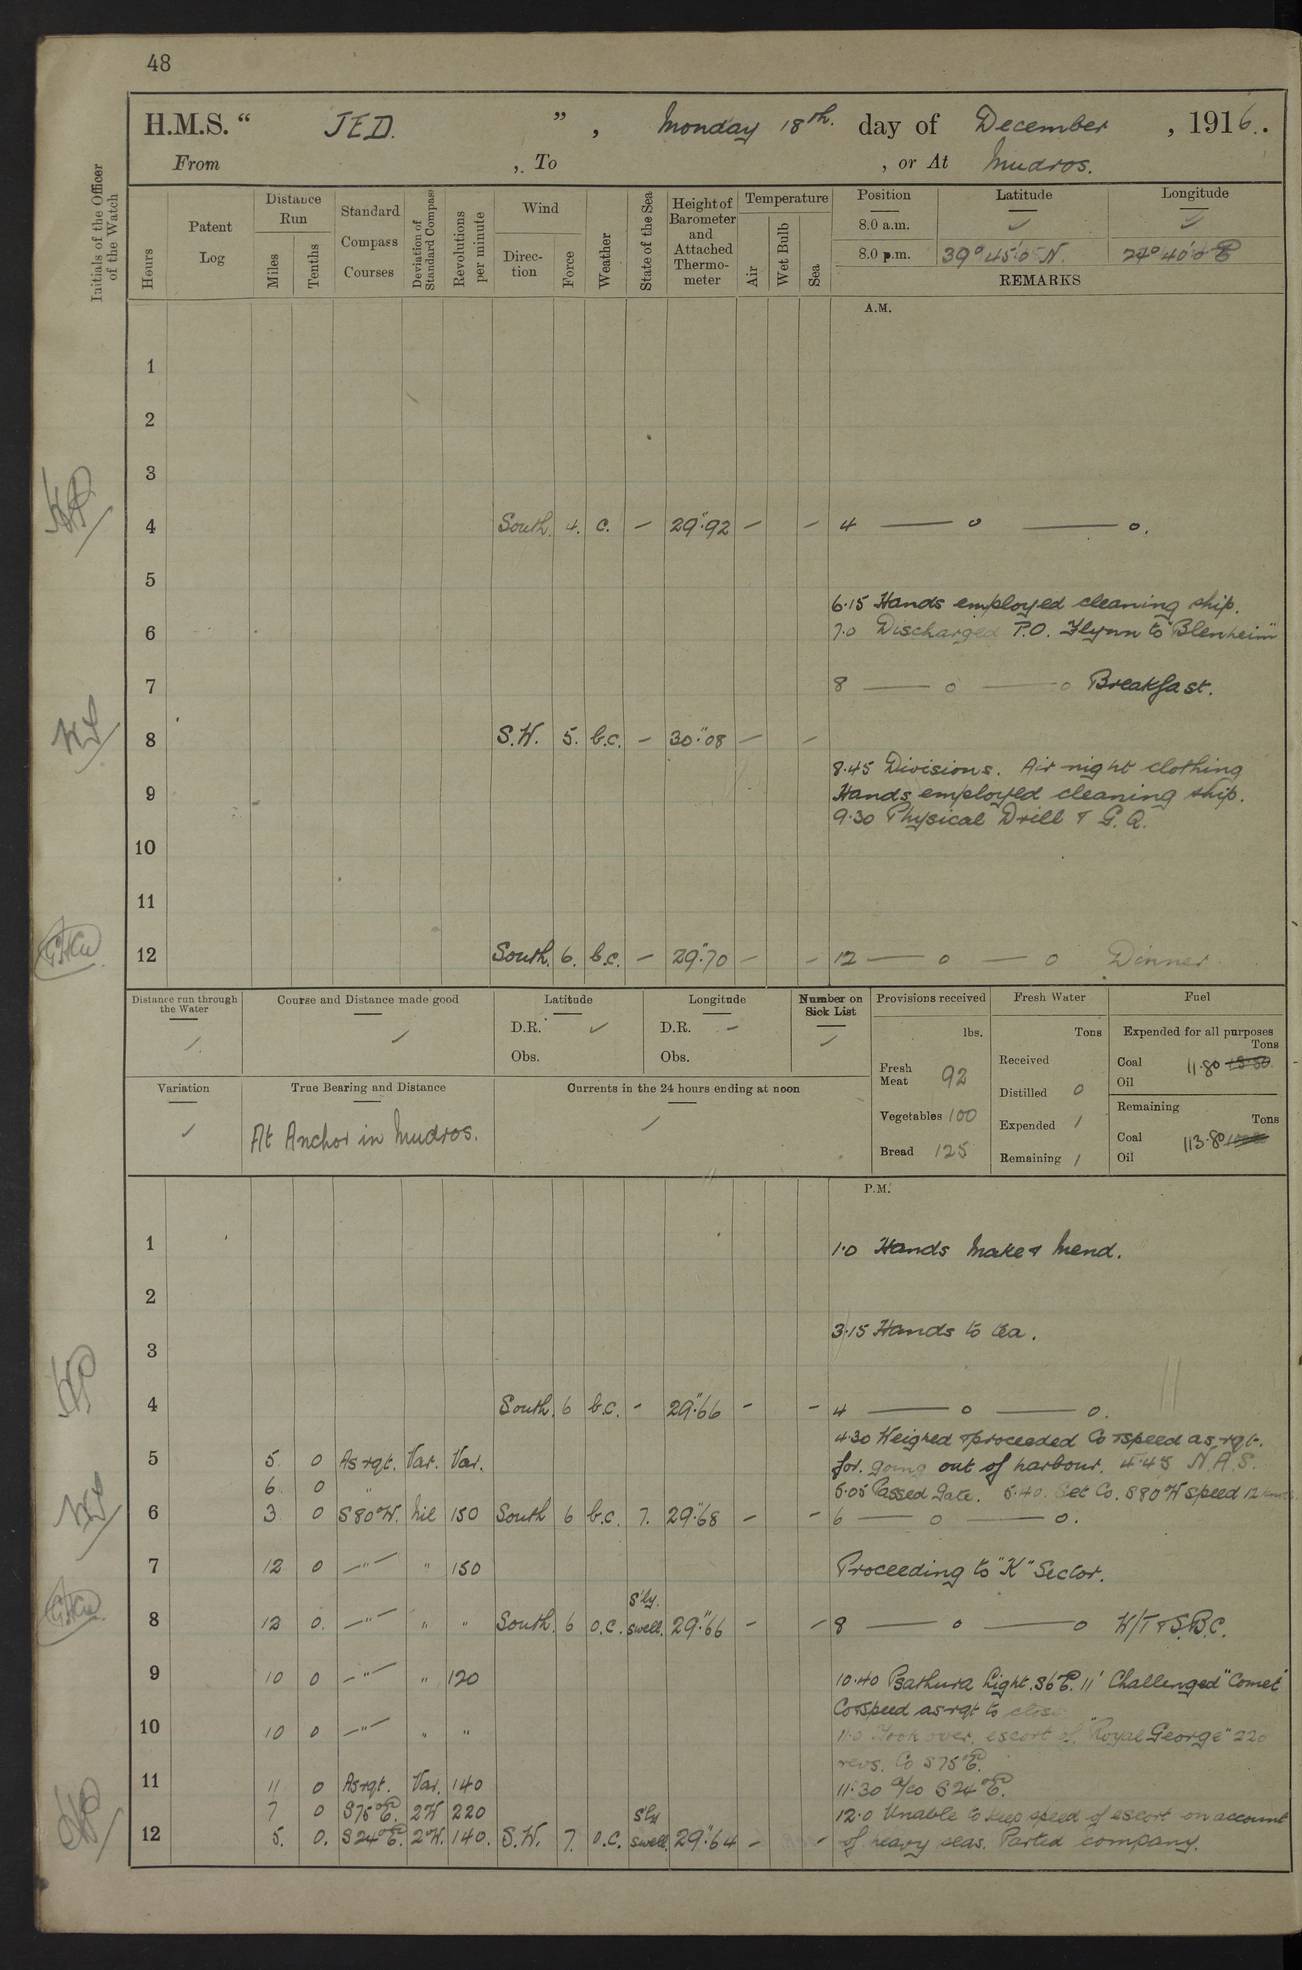 48
H.M.S. “ JED. ” , Monday 18th. day of December , 1916..
From , To , or At Mudros.
Initials of the Officer of the Watch
Hours
Patent Log
Distance Run
Miles
Tenths
Standard Compass Courses
Deviation of Standard Compass
Revolutions per minute
Wind
Direction
Force
Weather
State of the Sea
Height of Barometer and Attached Thermometer
Temperature
Air
Wet Bulb
Sea
Position Latitude Longitude
8.0 a.m. ✓ ✓
8.0 p.m. 39° 45'·0 N. 24° 40'·0 E
REMARKS
A.M.
1
2
3
4 South. 4. c. – 29"·92 – – 4 —— o —— o.
5
6·15 Hands employed cleaning ship.
6 7·0 Discharged P.O. Flynn to "Blenheim"
7 8 —— o —— o Breakfast.
8 S.W. 5. b.c. – 30"·08 – –
8·45 Divisions. Air night clothing
9 Hands employed cleaning ship.
9·30 Physical Drill & G.Q.
10
11
12 South. 6. b.c. – 29"·70 – – 12 —— o —— o Dinner
Distance run through the Water
✓
Course and Distance made good
✓
Latitude
D.R. ✓
Obs.
Longitude
D.R. –
Obs.
Number on Sick List
✓
Provisions received
lbs.
Fresh Meat 92
Vegetables 100
Bread 125
Fresh Water
Tons
Received
Distilled 0
Expended 1
Remaining 1
Fuel
Expended for all purposes
Tons
Coal 11·80
Oil
Remaining
Tons
Coal 113·80
Oil
Variation
✓
True Bearing and Distance
At Anchor in Mudros.
Currents in the 24 hours ending at noon
✓
P.M.
1 1·0 Hands Make & Mend.
2
3·15 Hands to tea.
3
4 South. 6 b.c. - 29"·66 - - 4 —— o —— o.
4·30 Weighed & proceeded Co & speed as rqt.
5 5. 0 As rqt. Var. Var. for. going out of harbour. 4·45 N.A.S.
6 0 " 5·05 Passed Gate. 5·40. Set Co. S80°W speed 12 knots
6 3 0 S80°W. Nil 150 South 6 b.c. 7. 29"·68 - - 6 —— o —— o.
7 12 0 —"— " 150 Proceeding to "K" Sector.
8 12 0. —"— " " South. 6 o.c. S'ly. swell. 29"·66 - - 8 —— o —— o W/T & S.B.C.
9 10 0 —"— " 120 10·40 Psathura Light. S6°E. 11' Challenged "Comet"
Co & speed as rqt to close
10 10 0 —"— " " 11·0 Took over escort of "Royal George" 220
revs. Co S75°E.
11 11 0 As rqt. Var. 140 11·30 a/co S24°E.
7 0 S75°E. 2W 220 12·0 Unable to keep speed of escort on account
12 5. 0. S24°E. 2°W. 140. S.W. 7. o.c. S'ly swell. 29"·64 - - of heavy seas. Parted company.